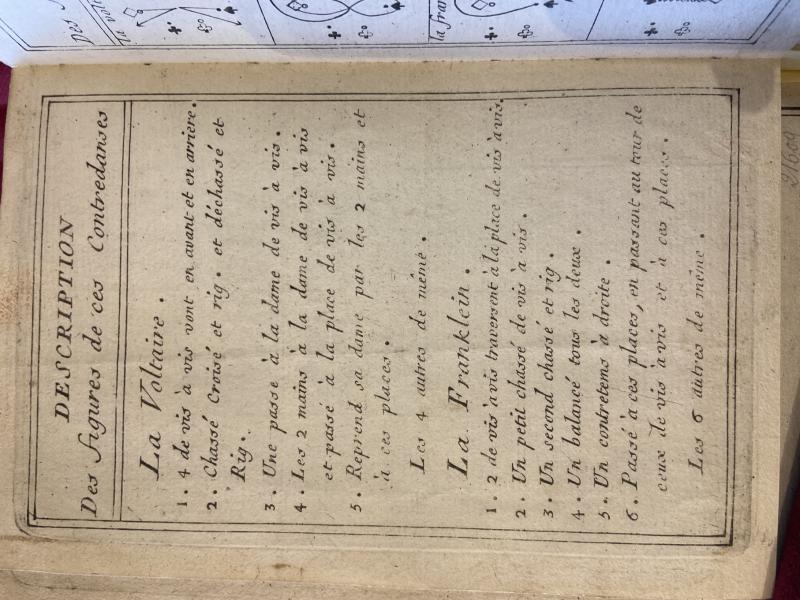 DESCRIPTION
Des figures de ces Contredanses
La Voltaire.
1. 4 de vis à vis vont en avant et en arriere.
2. Chassé Croisé et rig. et déchassé et
Rig.
3. Une passe à la dame de vis à vis.
4. Les 2 mains à la dame de vis à vis
et passé à la place de vis à vis.
5. Reprend sa dame par les 2 mains et
à ces places.
Les 4 autres de même.
La Franklein.
1. 2 de vis à vis traversent à la place de vis à vis.
2. Un petit chassé de vis à vis.
3. Un second chassé et rig.
4. Un balancé tous les deux.
5. Un contretems à droite.
6. Passé à ces places, en passant au tour de
ceux de vis à vis et à ces places.
Les 6 autres de même.
Des
la volt
la fran